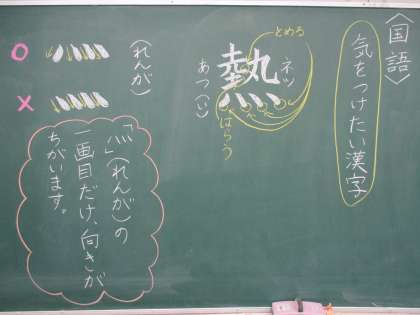 〈国語〉
気をつけたい漢字
とめる
熱
ネツ
あつ（い）
はらう
（れんが）
○
×
「灬」（れんが）の
一画目だけ、向きが
ちがいます。